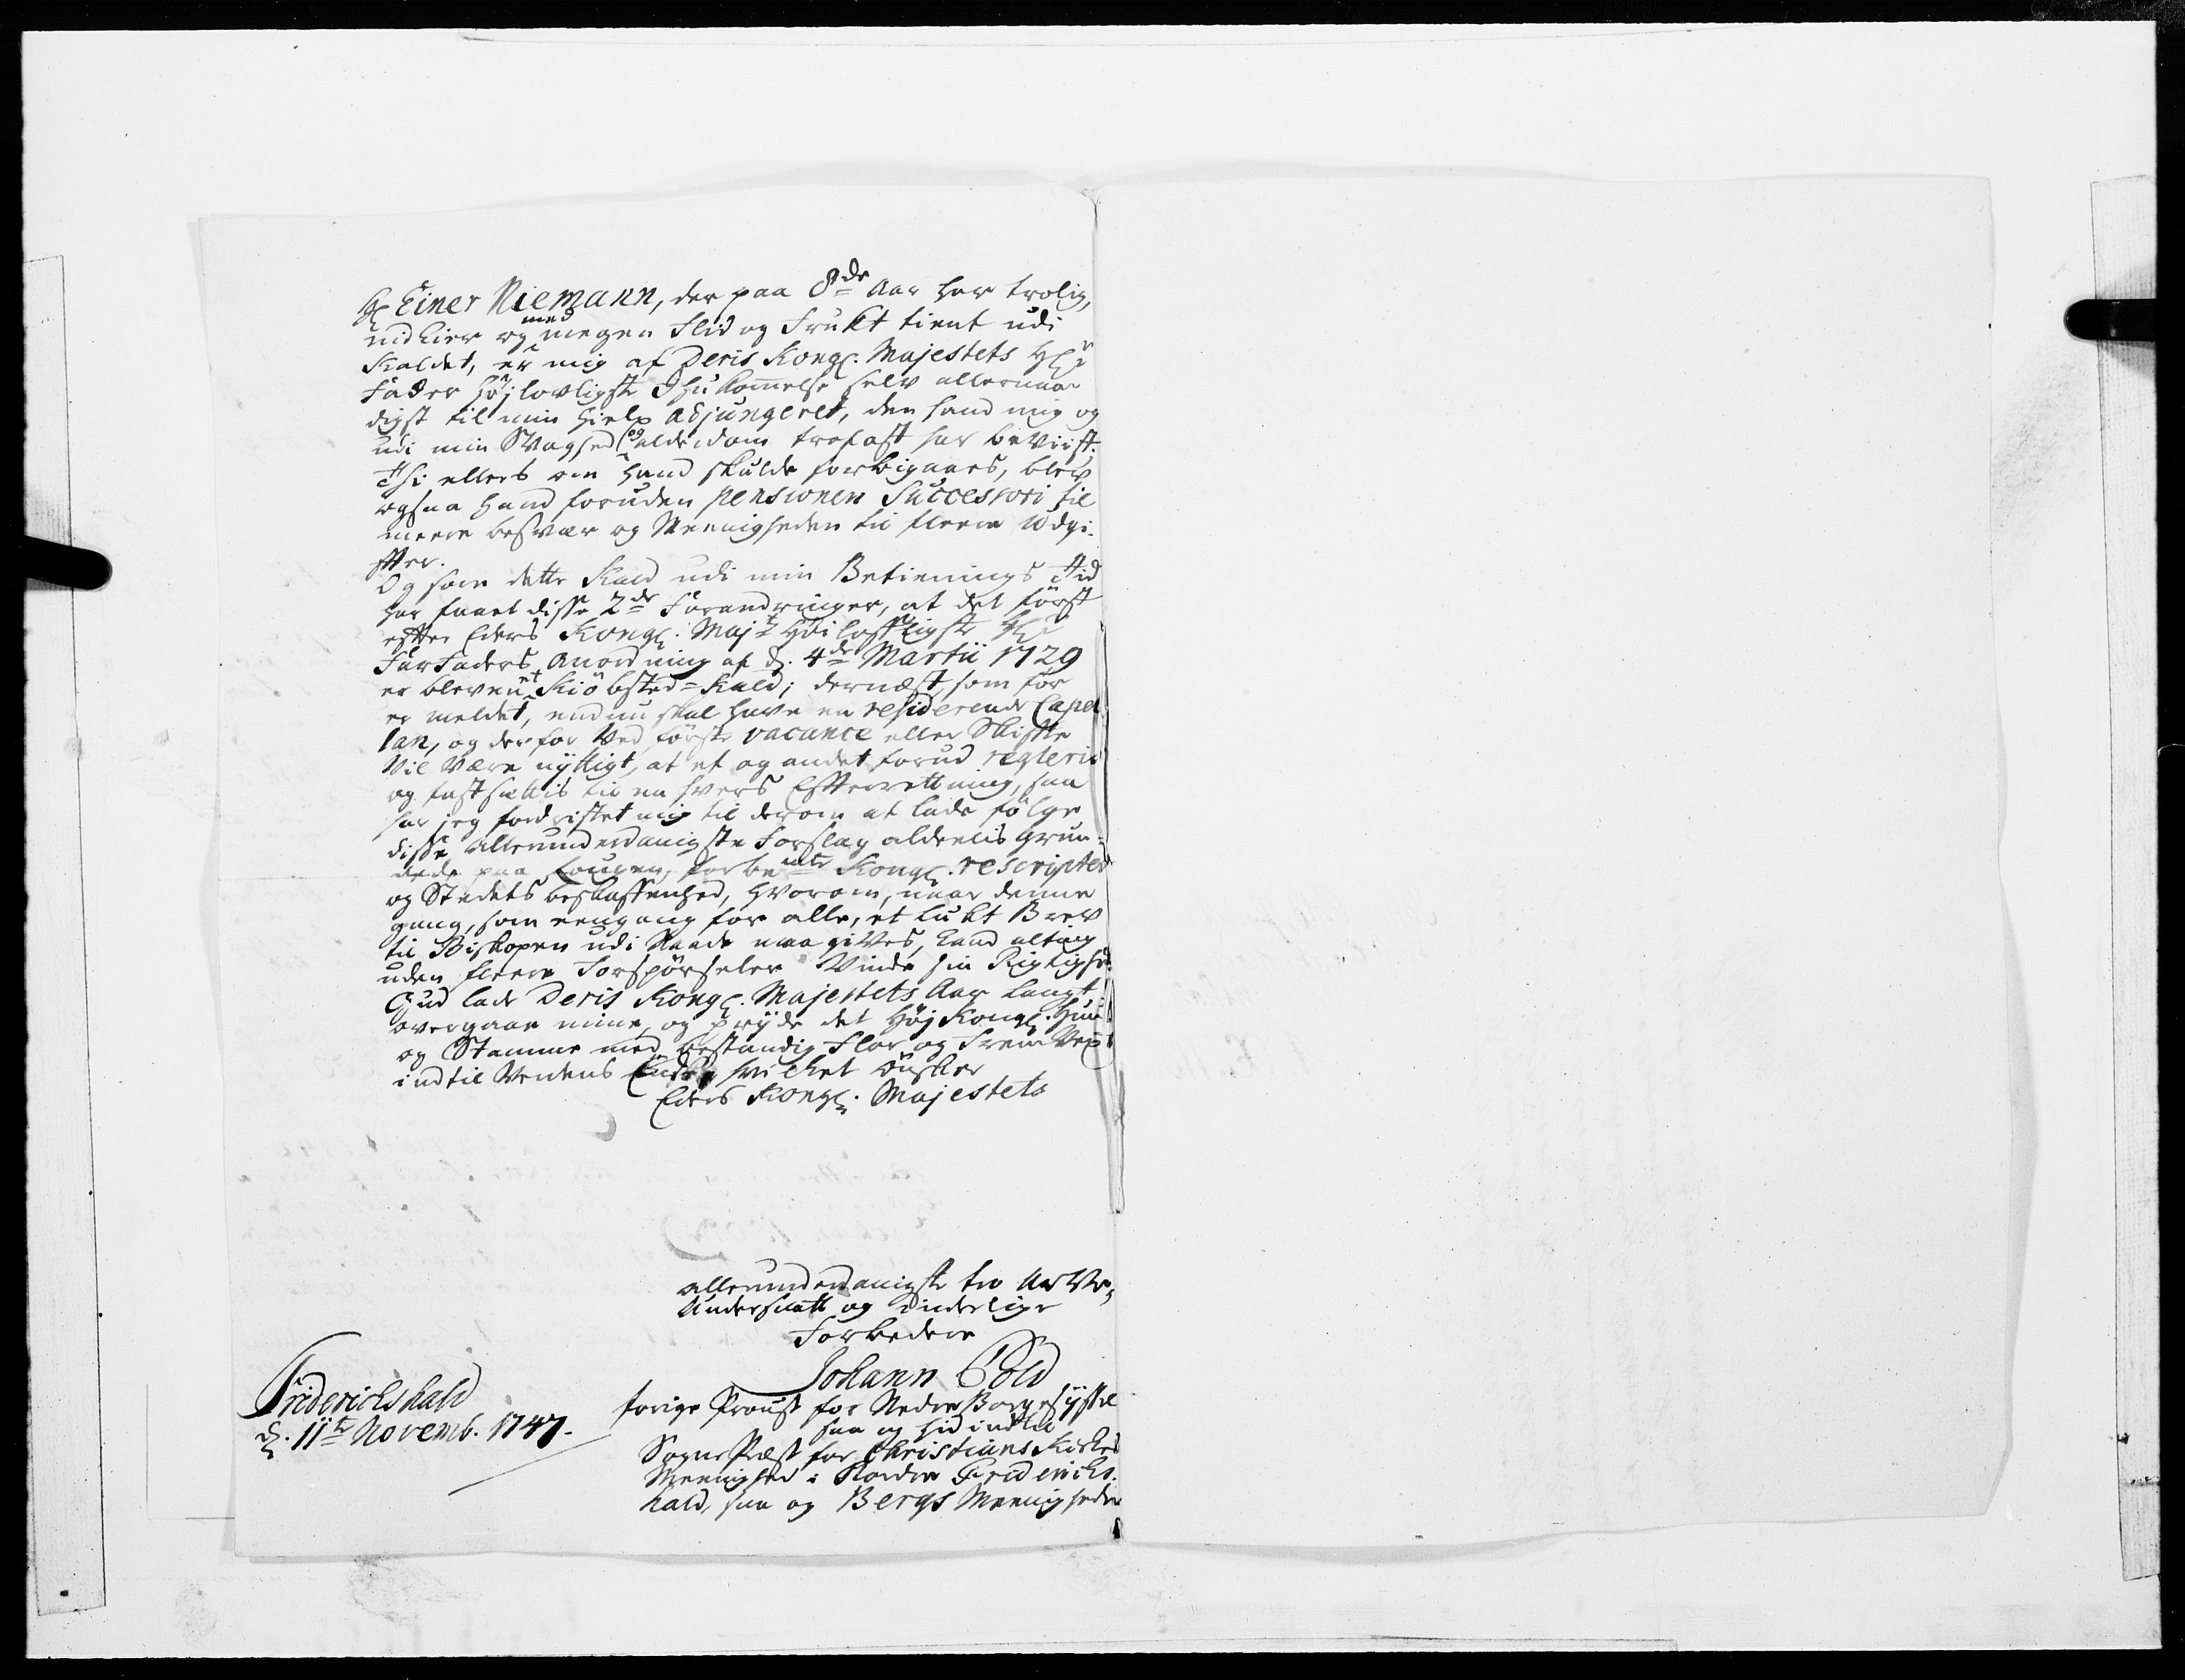 Hr Einer Niemann, der paa 8de Aar har trolig,
nidkier og med megen Flid og Frukt tient udi
Kaldet, er mig af Deris Kongl. Majestets Hr
Fader Höjlovligste Ihukommelse selv allernaa-
digst til min Hielp adjungeret, den hand mig og
udi min Svaghed og alderdom trofast har beviist.
Thi ellers om hand skulde forbigaaes, blev
ogsaa hand foruden pensionen Successori til
meere besvær og Meenigheden til fleere Udgi-
fter.
Og som dette Kald udi min Betienings Tid
har faaet disse 2de Forandringer, at det först
efter Eders Kongl. Majts Höiloffligste Hr
FarFaders Anordning af d. 4de Martii 1729
er bleven et Kiöbsted-Kald; dernæst, som för
er meldet, endnu skal have en residerende Capel
lan, og derfor ved förste vacance eller Skifte
vil være nyttigt, at et og andet forud regleris
og fastsættis til en hvers Efterretning, saa
har jeg fordristet mig til derom at lade fölge
disse allerunderdanigste Forslag aldeelis grun-
dede paa Lougen, forbemte Kongl. rescripter
og Stedets beskaffenhed, hvorom, naar denne
gang, som eengang for alle, et lukt Brev
til Biskopen udi Naade maa gives, kand alting
uden fleere Forspörseler vinde sin Rigtighed.
Gud lade Deris Kongl. Majestets Aar langt
overgaae mine, og pryde det Höj Kongl. Huus
og Stamme med bestandig Flor og Fremvext
indtil Verdens Ende, hvilket önsker
Eders Kongl. Majestets
allerunderdanigste tro Arve-
Undersaatt og inderlige
Forbedere
Johann Cold
forige Provst for Nedre Borgesyssel
saa og hid indtil
Sogne Præst for Christians Kirkes
Meenighed i Norden Friderichs-
hald, saa og Bergs Meenigheder
Friderichshald
d. 11te Novemb. 1747.